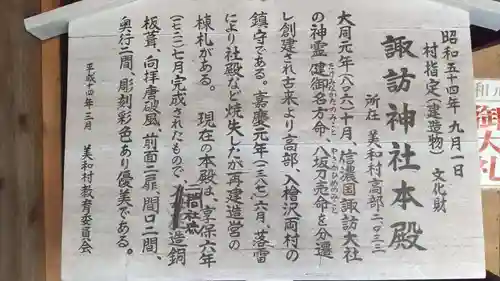 昭和五十四年 九月一日
村指定(建造物) 文化財
諏訪神社本殿
所在 美和村高部二〇三三
大同元年(八〇六)十月、信濃国諏訪大社
の神霊 健御名方命、八坂刀売命を分遷
たけみなかたのみこと やさかとめのみこと
し創建され古来より高部、入檜沢両村の
鎮守である。嘉慶元年(一三八七)六月、落雷
により社殿など焼失したが再建造営の
棟札がある。 現在の本殿は、享保六年
(一七二一)十月完成されたもので 三間社流造銅
板葺、向拝唐破風、前面二扉、間口二間、
奥行二間、彫刻彩色あり優美である。
平成十四年 三月 美和村教育委員会